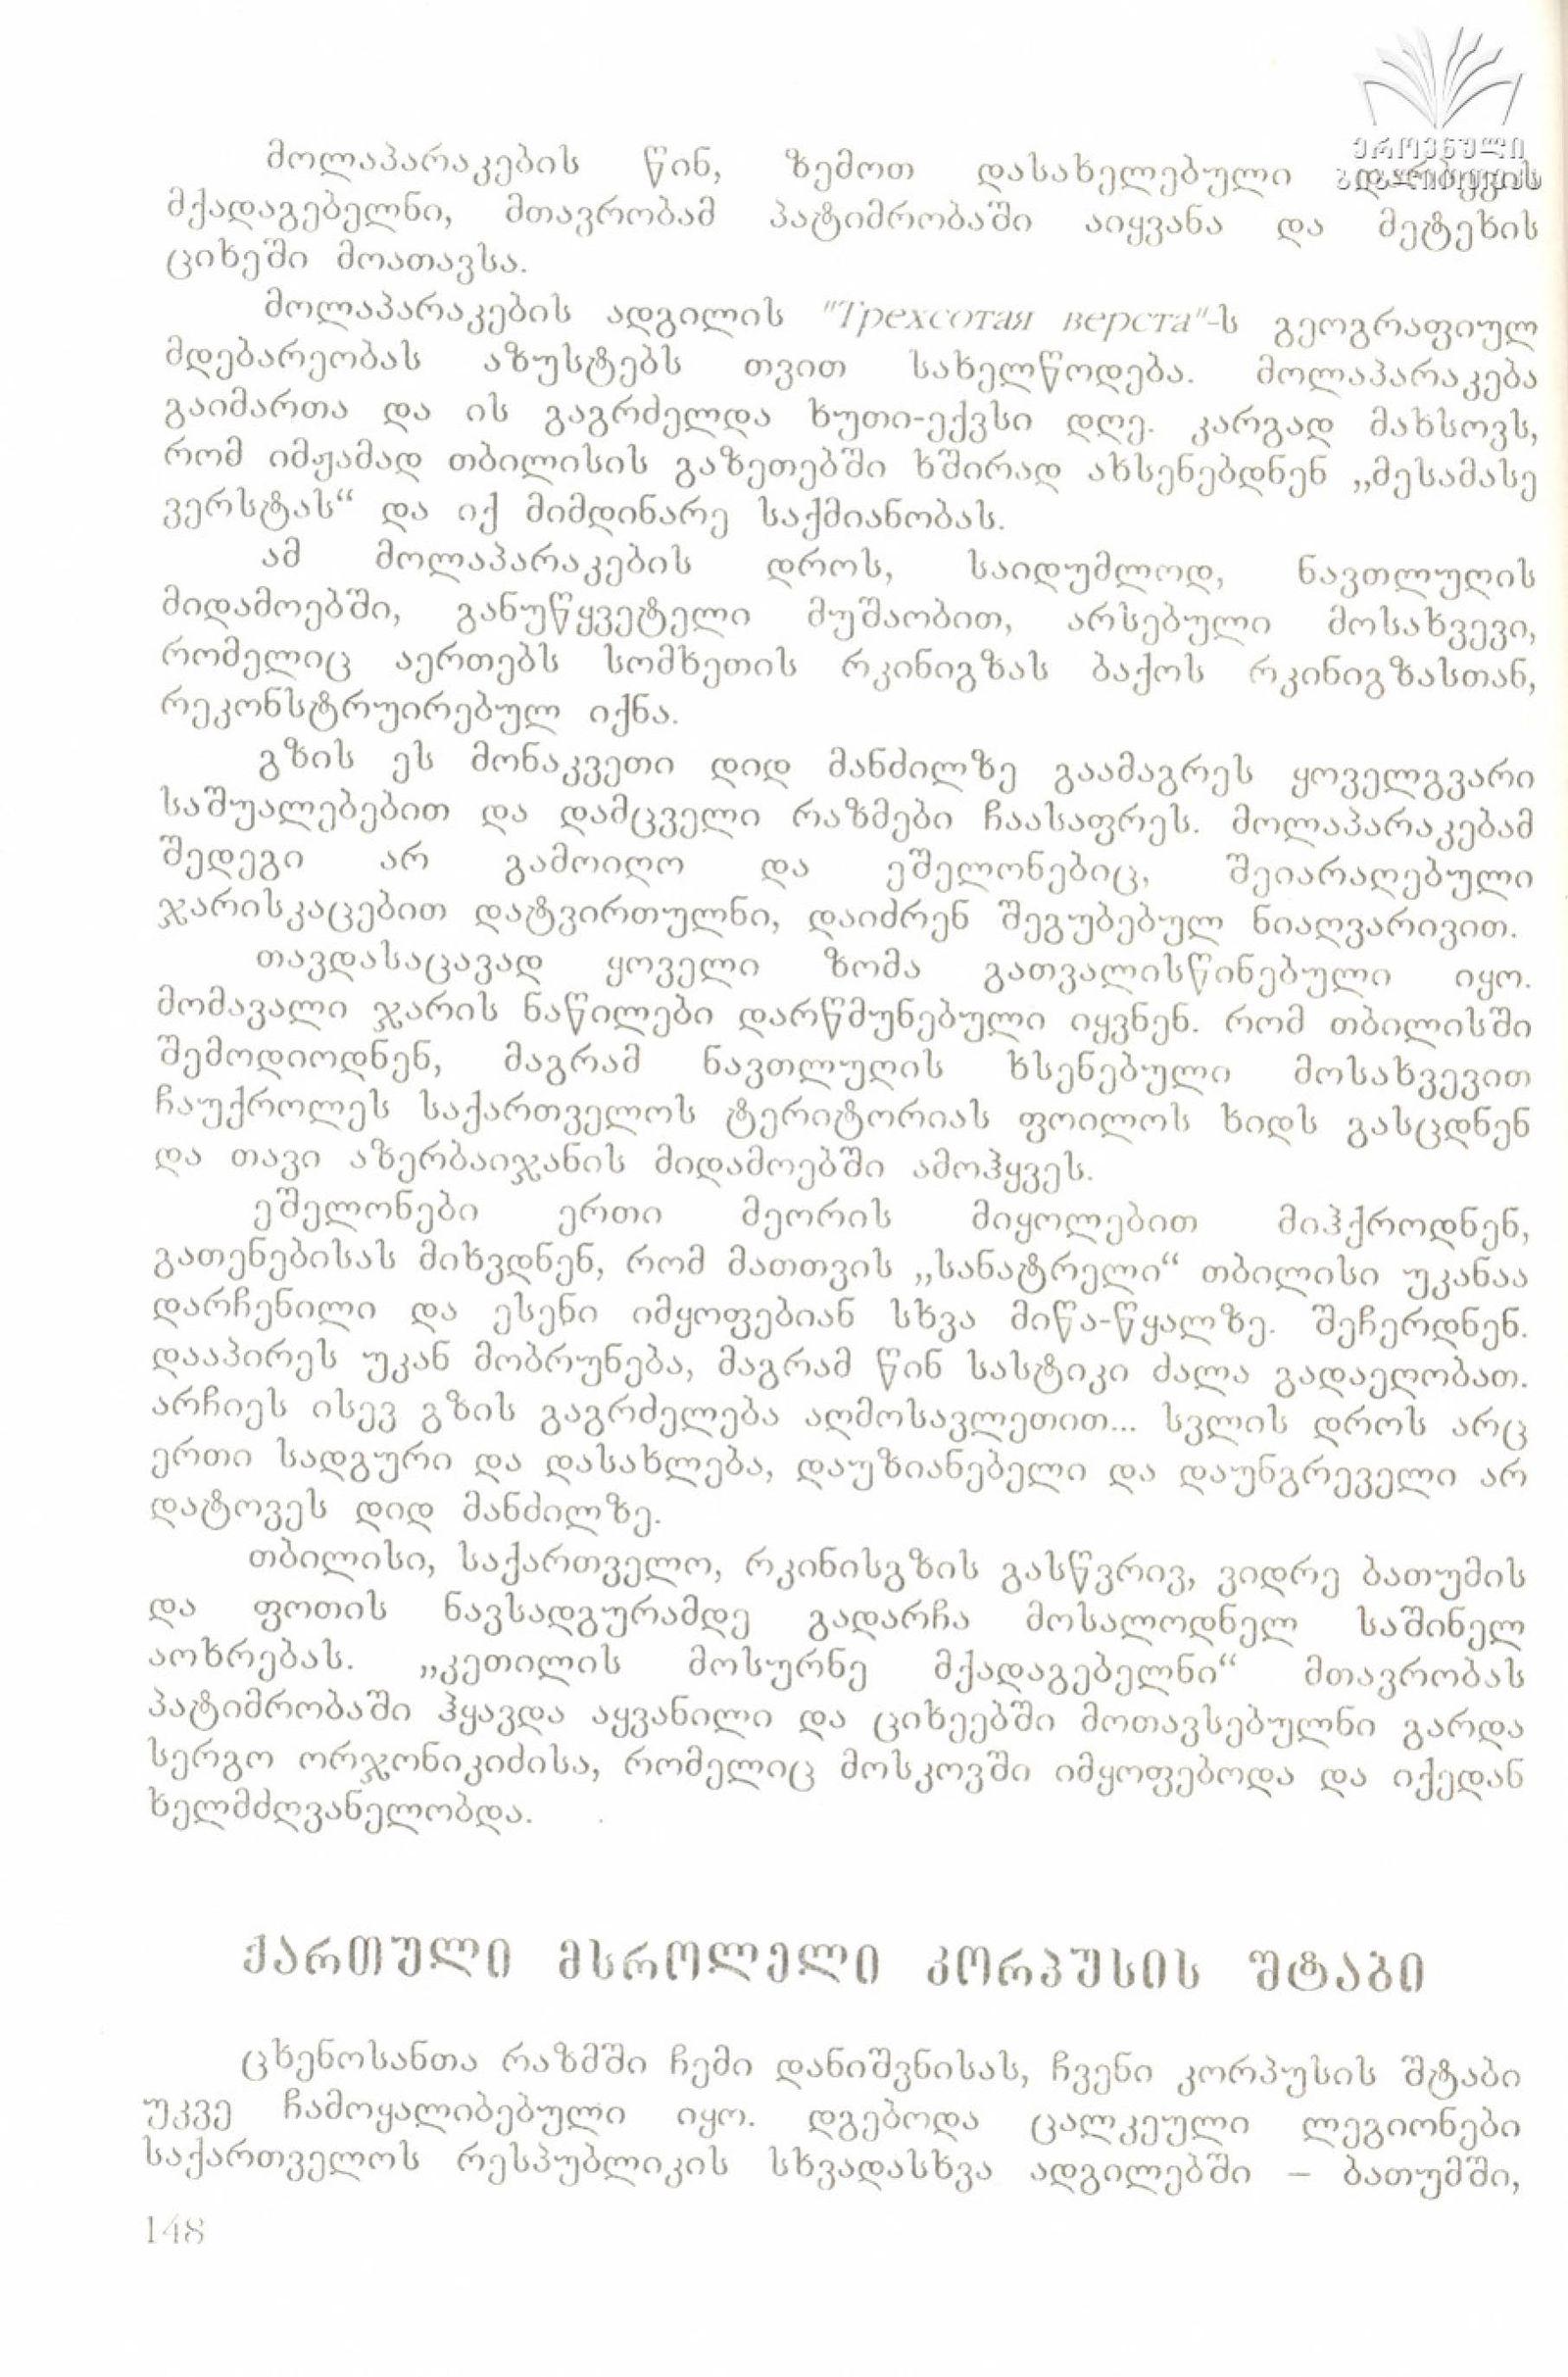 ეროვნული
ბიბლიოთეკა
მოლაპარაკების წინ, ზემოთ დასახელებული
მქადაგებელნი, მთავრობამ პატიმრობაში აიყვანა და მეტეხის
ციხეში მოათავსა.
მოლაპარაკების ადგილის "Трехсотая верста"-ს გეოგრაფიულ
მდებარეობას აზუსტებს თვით სახელწოდება. მოლაპარაკება
გაიმართა და ის გაგრძელდა ხუთი-ექვსი დღე. კარგად მახსოვს,
რომ იმჟამად თბილისის გაზეთებში ხშირად ახსენებდნენ „მესამასე
ვერსტას“ და იქ მიმდინარე საქმიანობას.
ამ მოლაპარაკების დროს, საიდუმლოდ, ნავთლუღის
მიდამოებში, განუწყვეტელი მუშაობით, არსებული მოსახვევი,
რომელიც აერთებს სომხეთის რკინიგზას ბაქოს რკინიგზასთან,
რეკონსტრუირებულ იქნა.
გზის ეს მონაკვეთი დიდ მანძილზე გაამაგრეს ყოველგვარი
საშუალებებით და დამცველი რაზმები ჩაასაფრეს. მოლაპარაკებამ
შედეგი არ გამოიღო და ეშელონებიც, შეიარაღებული
ჯარისკაცებით დატვირთულნი, დაიძრენ შეგუბებულ ნიაღვარივით.
თავდასაცავად ყოველი ზომა გათვალისწინებული იყო.
მომავალი ჯარის ნაწილები დარწმუნებული იყვნენ. რომ თბილისში
შემოდიოდნენ, მაგრამ ნავთლუღის ხსენებული მოსახვევით
ჩაუქროლეს საქართველოს ტერიტორიას ფოილოს ხიდს გასცდნენ
და თავი აზერბაიჯანის მიდამოებში ამოჰყვეს.
ეშელონები ერთი მეორის მიყოლებით მიჰქროდნენ,
გათენებისას მიხვდნენ, რომ მათთვის „სანატრელი“ თბილისი უკანაა
დარჩენილი და ესენი იმყოფებიან სხვა მიწა-წყალზე. შეჩერდნენ.
დააპირეს უკან მობრუნება, მაგრამ წინ სასტიკი ძალა გადაეღობათ.
არჩიეს ისევ გზის გაგრძელება აღმოსავლეთით... სვლის დროს არც
ერთი სადგური და დასახლება, დაუზიანებელი და დაუნგრეველი არ
დატოვეს დიდ მანძილზე.
თბილისი, საქართველო, რკინისგზის გასწვრივ, ვიდრე ბათუმის
და ფოთის ნავსადგურამდე გადარჩა მოსალოდნელ საშინელ
აოხრებას. „კეთილის მოსურნე მქადაგებელნი“ მთავრობას
პატიმრობაში ჰყავდა აყვანილი და ციხეებში მოთავსებულნი გარდა
სერგო ორჯონიკიძისა, რომელიც მოსკოვში იმყოფებოდა და იქედან
ხელმძღვანელობდა.
ქართული მსროლელი კორპუსის შტაბი
ცხენოსანთა რაზმში ჩემი დანიშვნისას, ჩვენი კორპუსის შტაბი
უკვე ჩამოყალიბებული იყო. დგებოდა ცალკეული ლეგიონები
საქართველოს რესპუბლიკის სხვადასხვა ადგილებში – ბათუმში,
148